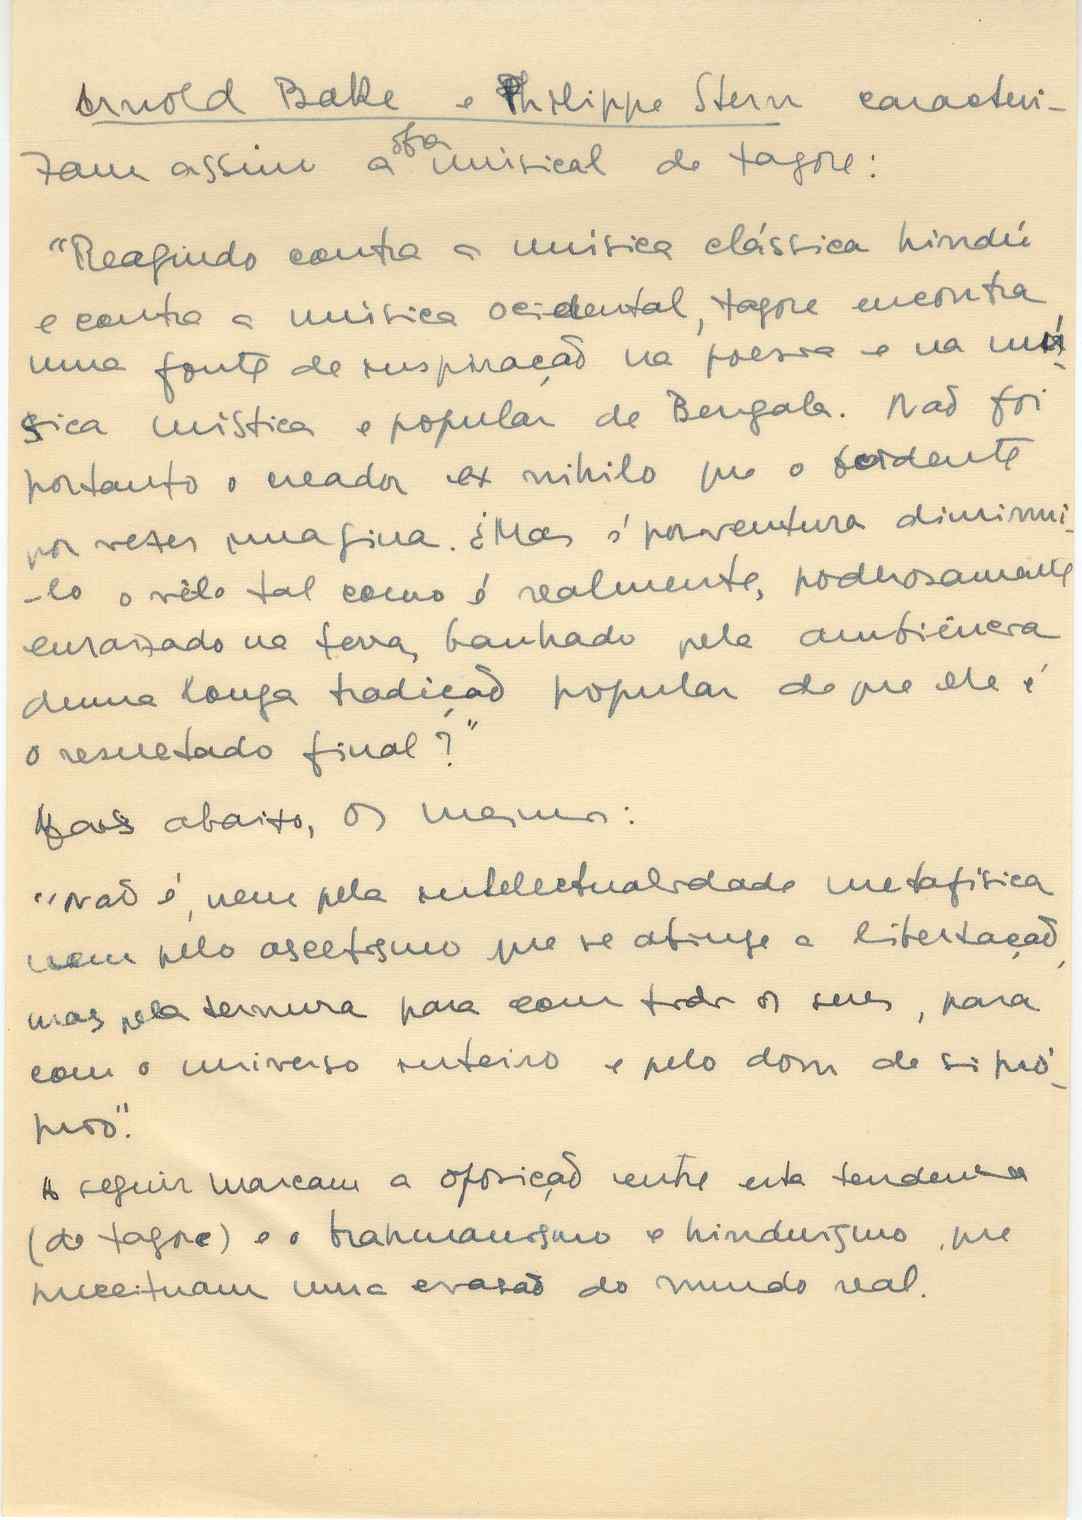 Arnold Bake e Philippe Stern caracteri-
zam assim a obra musical de Tagore:
"Reagindo contra a música clássica hindú
e contra a música ocidental, Tagore encontra
uma fonte de inspiração na poesia e na mú-
sica mística e popular de Bengala. Não foi
portanto o creador ex nihilo que o ocidente
por vezes imagina. ¿Mas é porventura diminui-
-lo o vê-lo tal como é realmente, poderosamente
enraizado na terra, banhado pela ambiência
duma longa tradição popular de que ele é
o resultado final?"
Mais abaixo, os mesmos:
"Não é, nem pela intelectualidade metafísica
nem pelo ascetismo que se atinge a libertação,
mas pela ternura para com todos os seres, para
com o universo inteiro e pelo dom de si pró-
prio".
A seguir marcam a oposição entre esta tendencia
(de Tagore) e o brahmanismo e hinduismo, que
preceituam uma evasão do mundo real.